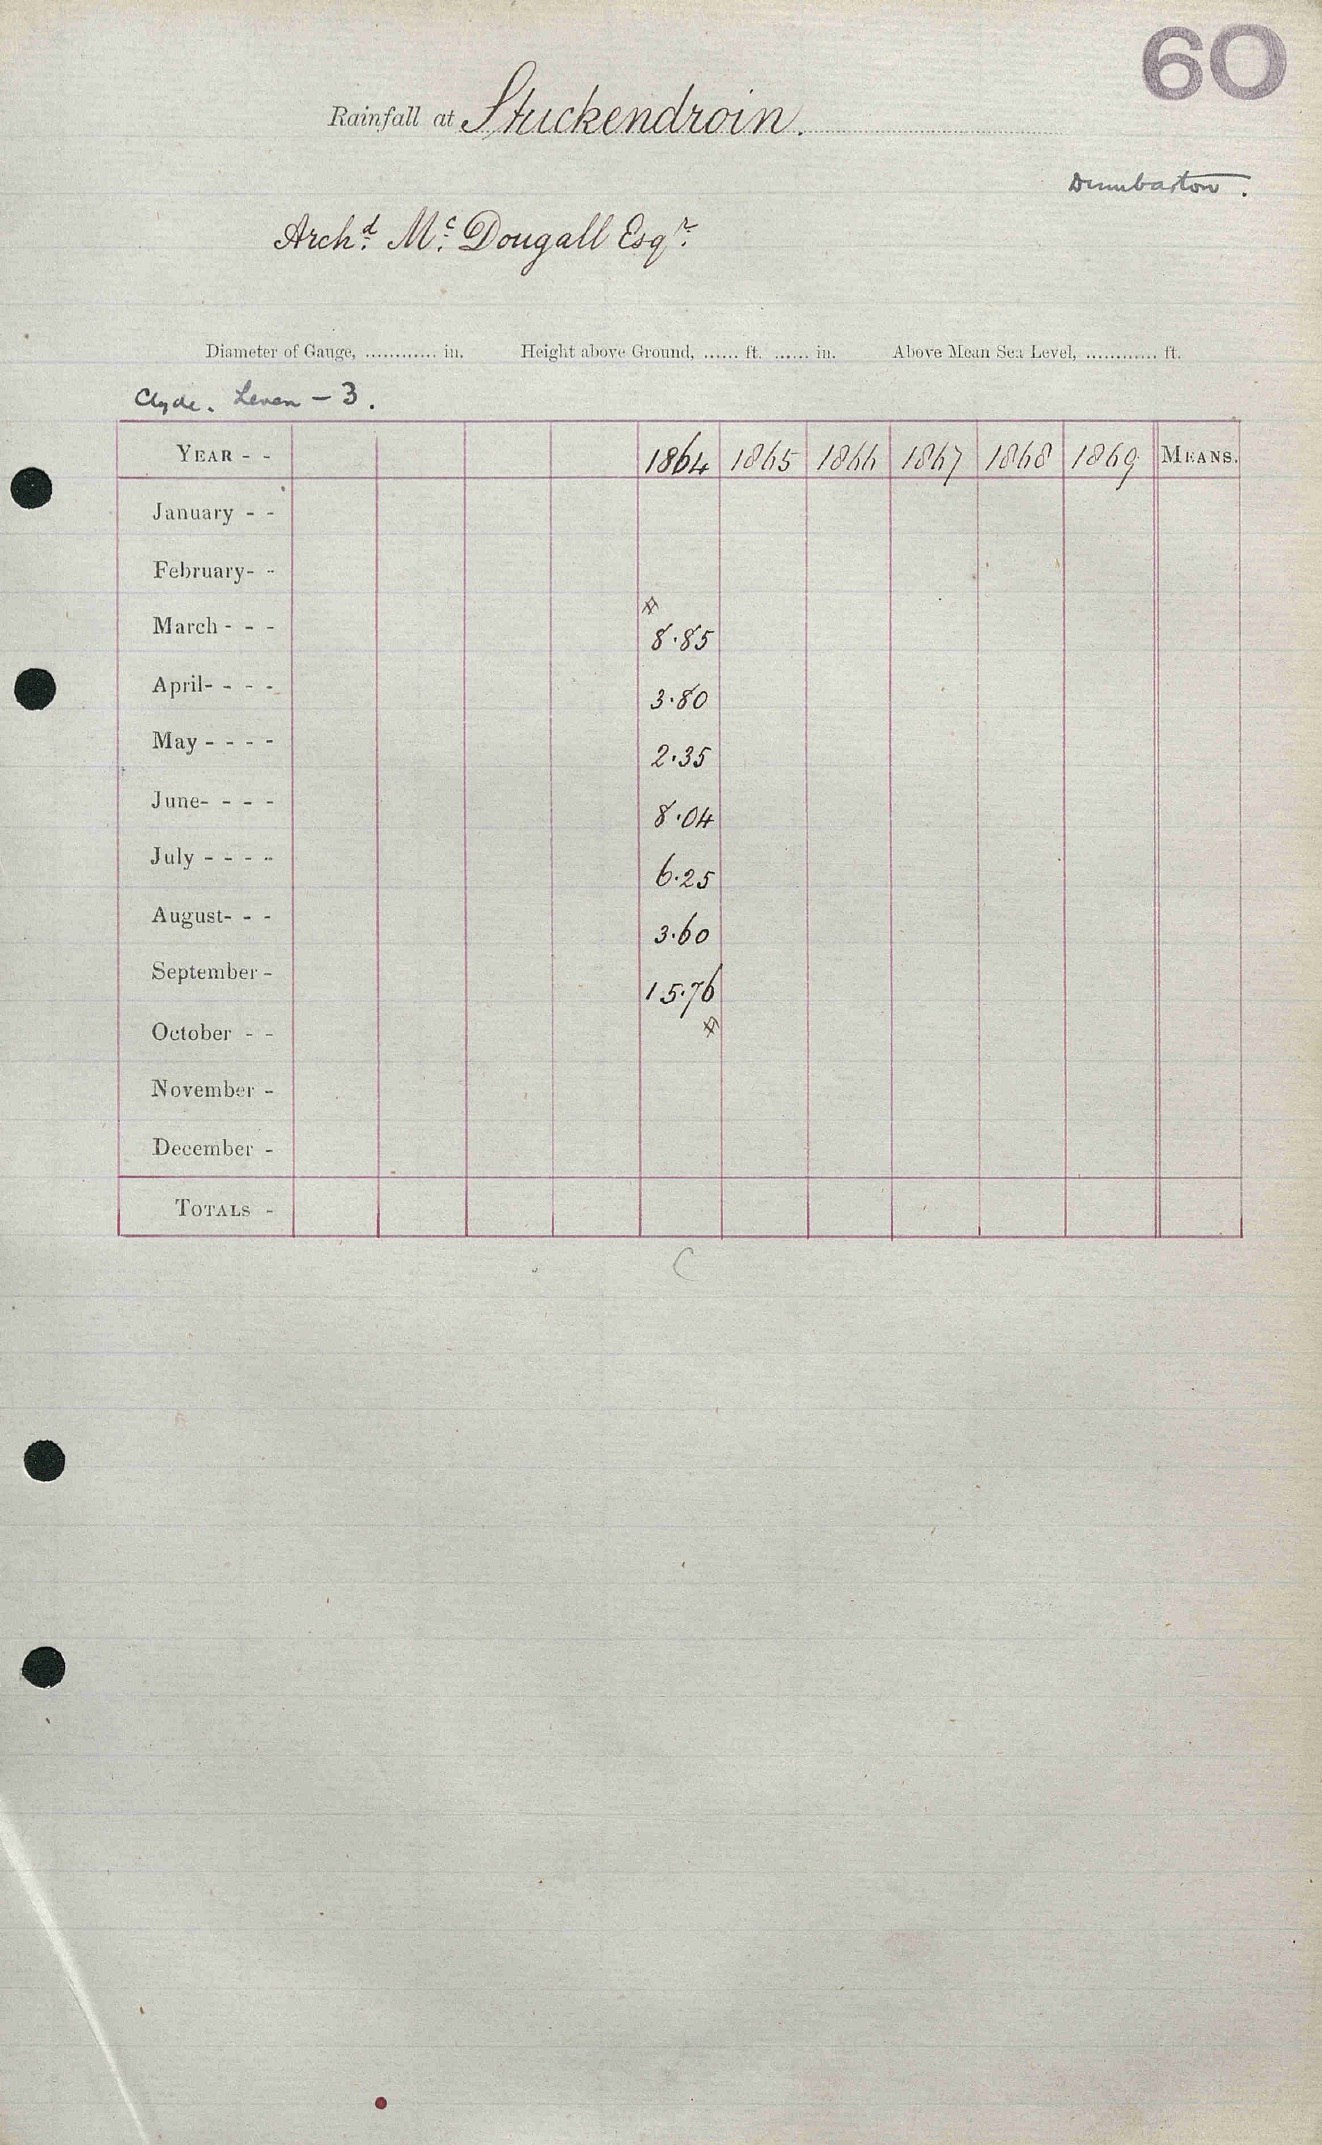 60
Rainfall at Stuckendroin.
Dumbarton.
Archd. Mc. Dougall Esqr.
Diameter of Gauge, ............ in. Height above Ground, ...... ft. ...... in. Above Mean Sea Level, ............ ft.
Clyde. Leven - 3.
YEAR - - 1864 1865 1866 1867 1868 1869 MEANS.
January - -
February- -
March - - - 8.85
April- - - - 3.80
May - - - - 2.35
June- - - - 8.04
July - - - - 6.25
August- - - 3.60
September - 15.76
October - -
November -
December -
TOTALS -
C